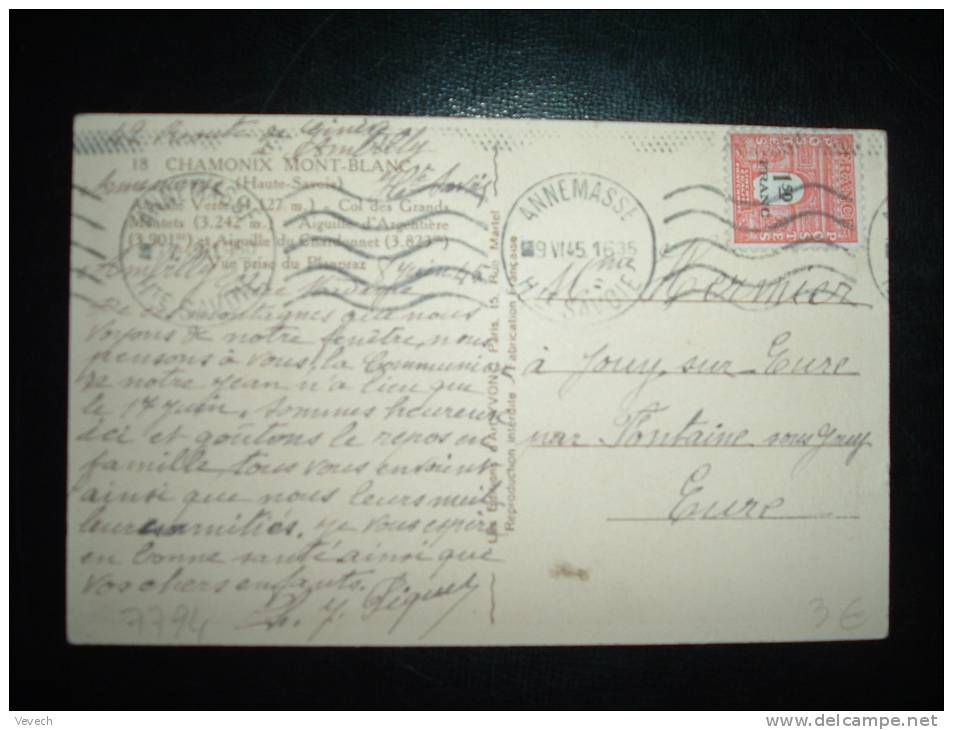 42 Route de Genève
Ambilly
18 CHAMONIX MONT-BLANC
(Haute-Savoie)
Hte Savoie
Aiguille Verte (4.127 m.) - Col des Grands
Montets (3.242 m.) - Aiguille d'Argentière
(3.901m) et Aiguille du Chardonnet (3.823m)
Vue prise du Planpraz
Ambilly 8 Juin 45
De ces montagnes que nous
voyons de notre fenêtre, nous
pensons à vous, la Communion
de notre Jean n'a lieu que
le 17 juin. Sommes heureux
ici et goûtons le repos en
famille, tous vous envoient
ainsi que nous leurs meil
leures amitiés. Je vous espère
en bonne santé ainsi que
vos chers enfants.
7794
Les Editions d'Art YVON, Paris, 15, Rue Martel
Reproduction interdite Fabrication Française
ANNEMASSE
9 VI 45 1635
HTE SAVOIE
POSTES
FRANCE
1F50
FRANC
Mme Mermier
à Jouy sur Eure
par Fontaine sous Jouy
Eure
3 €
Vevech
www.delcampe.net